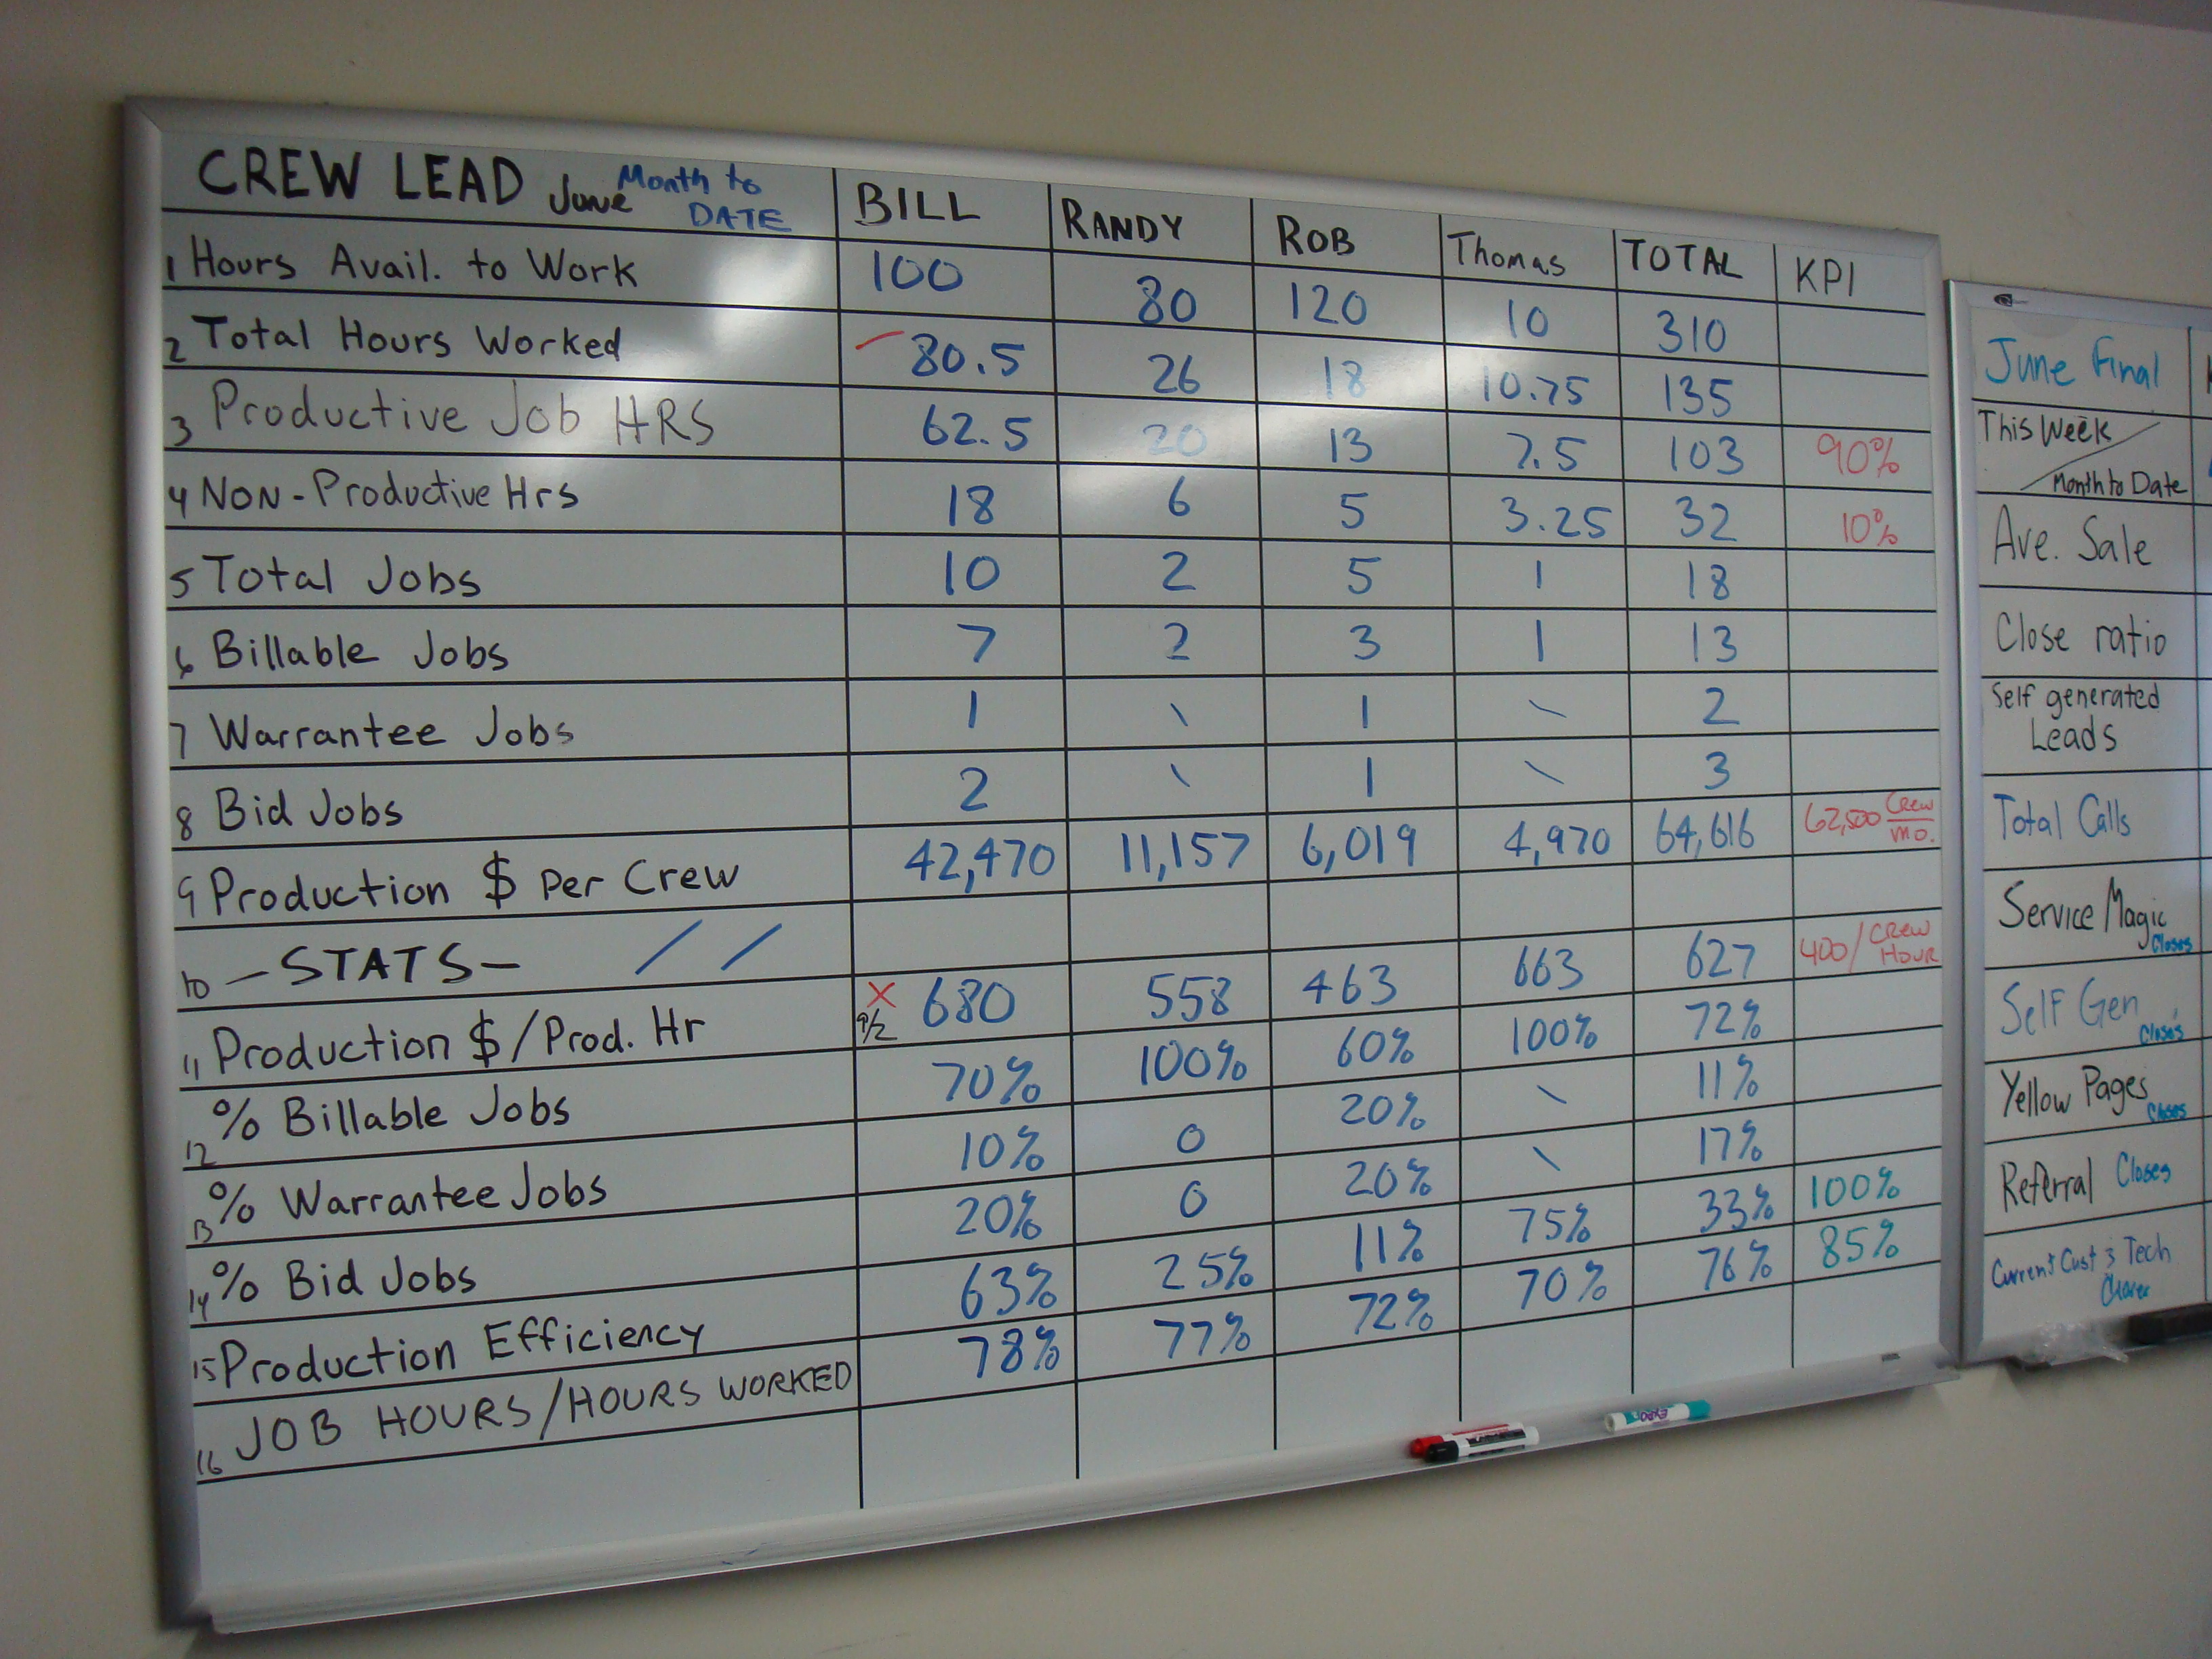 CREW LEAD June Month to DATE BILL RANDY ROB Thomas TOTAL KPI
1 Hours Avail. to Work 100 80 120 10 310
2 Total Hours Worked 80.5 26 18 10.75 135
3 Productive Job HRS 62.5 20 13 7.5 103 90%
4 NON-Productive Hrs 18 6 5 3.25 32 10%
5 Total Jobs 10 2 5 1 18
6 Billable Jobs 7 2 3 1 13
7 Warrantee Jobs 1 \ 1 \ 2
8 Bid Jobs 2 \ 1 \ 3
9 Production $ Per Crew 42,470 11,157 6,019 4,970 64,616 62,500 Crew/mo.
10 - STATS - / /
11 Production $/Prod. Hr X 9/2 680 558 463 663 627 400/CREW HOUR
12 % Billable Jobs 70% 100% 60% 100% 72%
13 % Warrantee Jobs 10% 0 20% \ 11%
14 % Bid Jobs 20% 0 20% \ 17%
15 Production Efficiency 63% 25% 11% 75% 33% 100%
16 JOB HOURS/HOURS WORKED 78% 77% 72% 70% 76% 85%
June Final
This Week
Month to Date
Ave. Sale
Close ratio
Self generated
Leads
Total Calls
Service Magic
Closes
Self Gen
Closes
Yellow Pages
Closes
Referral Closes
Current Cust & Tech
EXPO